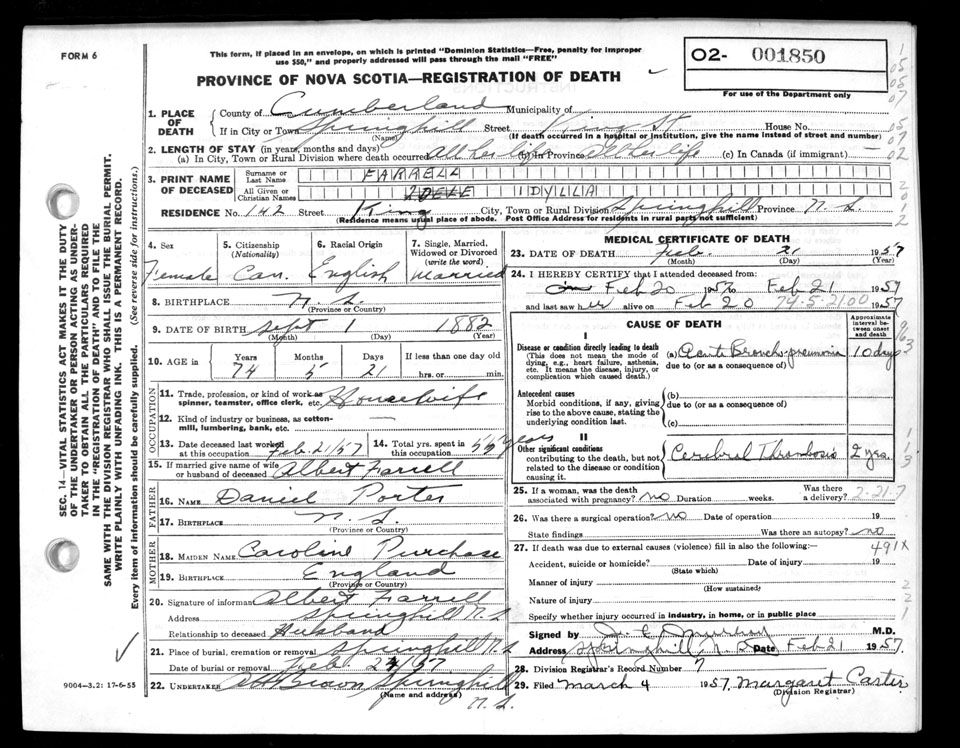 FORM 6
This form, if placed in an envelope, on which is printed "Dominion Statistics—Free, penalty for improper
use $50," and properly addressed will pass through the mail "FREE"
O2- 001850
For use of the Department only
PROVINCE OF NOVA SCOTIA—REGISTRATION OF DEATH
1. PLACE OF DEATH County of Cumberland Municipality of
If in City or Town Springhill Street King St House No.
(Name) (If death occurred in a hospital or institution, give the name instead of street and number)
2. LENGTH OF STAY (in years, months and days)
(a) In City, Town or Rural Division where death occurred All her life (b) In Province All her life (c) In Canada (if immigrant) —
3. PRINT NAME OF DECEASED Surname or Last Name FARRELL
All Given or Christian Names IDYLLA
RESIDENCE No. 142 Street King City, Town or Rural Division Springhill Province N.S.
(Residence means usual place of abode. Post Office Address for residents in rural parts not sufficient)
4. Sex Female
5. Citizenship (Nationality) Can.
6. Racial Origin English
7. Single, Married, Widowed or Divorced (write the word) Married
8. BIRTHPLACE N.S.
(Province or Country)
9. DATE OF BIRTH Sept 1 1882
(Month) (Day) (Year)
10. AGE in Years Months Days If less than one day old
74 5 21 hrs. or min.
OCCUPATION
11. Trade, profession, or kind of work as spinner, teamster, office clerk, etc. Housewife
12. Kind of industry or business, as cotton-mill, lumbering, bank, etc. —
13. Date deceased last worked at this occupation Feb. 21/57 14. Total yrs. spent in this occupation 55 years
15. If married give name of wife or husband of deceased Albert Farrell
FATHER
16. NAME Daniel Porter
17. BIRTHPLACE N.S.
(Province or Country)
MOTHER
18. MAIDEN NAME Caroline Purchase
19. BIRTHPLACE England
(Province or Country)
20. Signature of informant Albert Farrell
Address Springhill N.S
Relationship to deceased Husband
21. Place of burial, cremation or removal Springhill N.S
Date of burial or removal Feb 24/57
22. UNDERTAKER Brown Springhill
(Name and address) N.S.
9004-3.2: 17-6-55
MEDICAL CERTIFICATE OF DEATH
23. DATE OF DEATH Feb. 21 1957
(Month) (Day) (Year)
24. I HEREBY CERTIFY that I attended deceased from:
on Feb 20 1957 to Feb 21 1957
and last saw her alive on Feb 20 74-5-21.00 1957
CAUSE OF DEATH
Approximate interval between onset and death
I
Disease or condition directly leading to death
(This does not mean the mode of dying, e.g., heart failure, asthenia, etc. It means the disease, injury, or complication which caused death.)
(a) Acute Broncho-pneumonia 10 days
due to (or as a consequence of)
Antecedent causes
Morbid conditions, if any, giving rise to the above cause, stating the underlying condition last.
(b)
due to (or as a consequence of)
(c)
II
Other significant conditions
contributing to the death, but not related to the disease or condition causing it.
Cerebral Thrombosis 2 yrs.
25. If a woman, was the death associated with pregnancy? no Duration weeks. Was there a delivery? 2-21-7
26. Was there a surgical operation? no Date of operation 19
State findings Was there an autopsy? no
27. If death was due to external causes (violence) fill in also the following:— 491X
Accident, suicide or homicide? Date of injury 19
(State which)
Manner of injury
(How sustained)
Nature of injury
Specify whether injury occurred in industry, in home, or in public place
Signed by M.D.
Address Springhill, N.S Date Feb 21 1957.
28. Division Registrar's Record Number 7
29. Filed March 4 1957 Margaret Carter
(Division Registrar)
SEC. 14—VITAL STATISTICS ACT MAKES IT THE DUTY
OF THE UNDERTAKER OR PERSON ACTING AS UNDER-
TAKER TO OBTAIN ALL THE PARTICULARS REQUIRED
IN THE "REGISTRATION OF DEATH" AND TO FILE THE
SAME WITH THE DIVISION REGISTRAR WHO SHALL ISSUE THE BURIAL PERMIT.
WRITE PLAINLY WITH UNFADING INK. THIS IS A PERMANENT RECORD.
Every item of information should be carefully supplied. (See reverse side for instructions.)